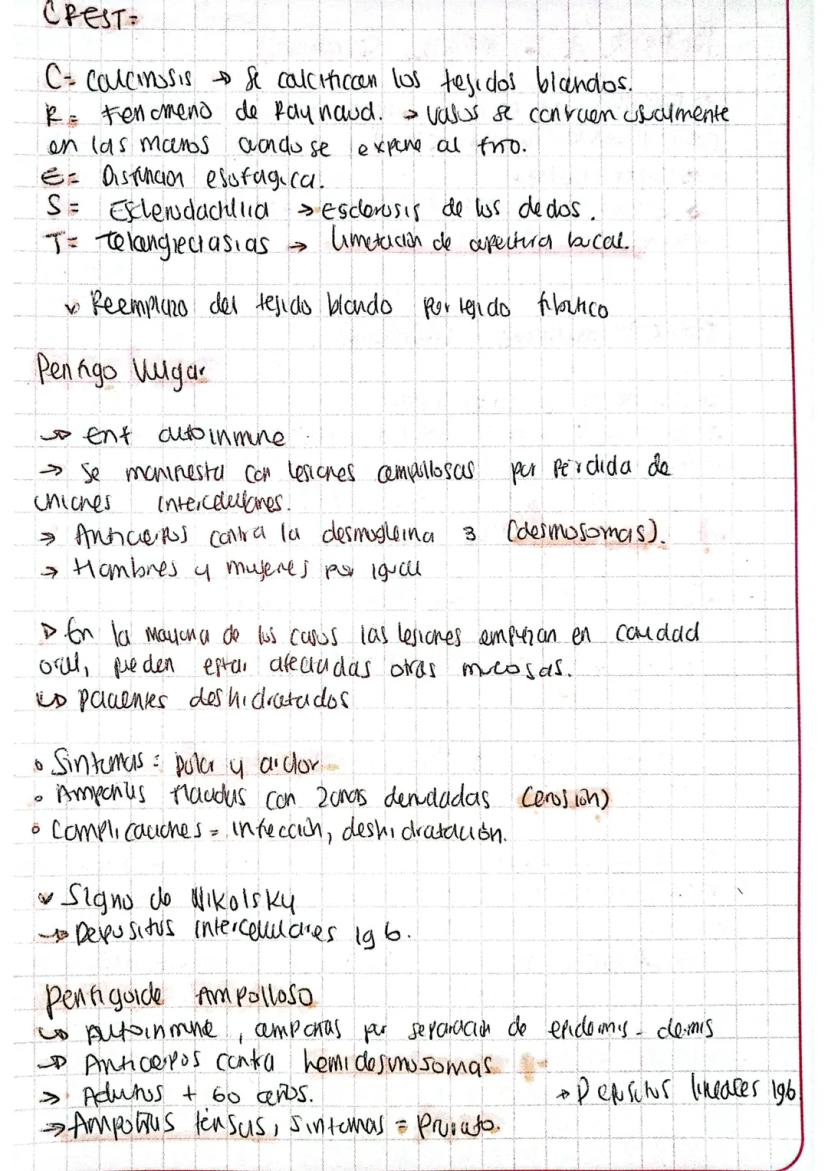 CREST=
C= Calcinosis → Se calcifican los tejidos blandos.
R= Fenomeno de Raynaud. → Vasos se contraen usualmente
en las manos cuando se expone al frio.
E= Disfuncion esofagica.
S= Esclerodactilia → esclerosis de los dedos.
T= Telangiectasias → Limitación de apertura bucal.
✓ Reemplazo del tejido blando por tejido fibrotico
Penfigo Vulgar
→ Enf autoinmune
→ Se manifiesta con lesiones ampollosas por perdida de
uniones intercelulares.
→ Anticuerpos contra la desmogleina 3 (desmosomas).
→ Hombres y mujeres por igual
▷ En la mayoria de los casos las lesiones empiezan en cavidad
oral, pueden estar afectadas otras mucosas.
↳ pacientes deshidratados
• Sintomas: dolor y ardor
• Ampollas flacidas con zonas denudadas (erosion)
• Complicaciones = infección, deshidratación.
✓ Signo de Nikolsky
→ Depositos intercelulares IgG.
Penfigoide Ampolloso
↳ Autoinmune, ampollas por separación de epidermis - dermis
→ Anticuerpos contra hemidesmosomas
→ Adultos + 60 años. → Depositos lineares IgG
→ Ampollas tensas, sintomas = Prurito.